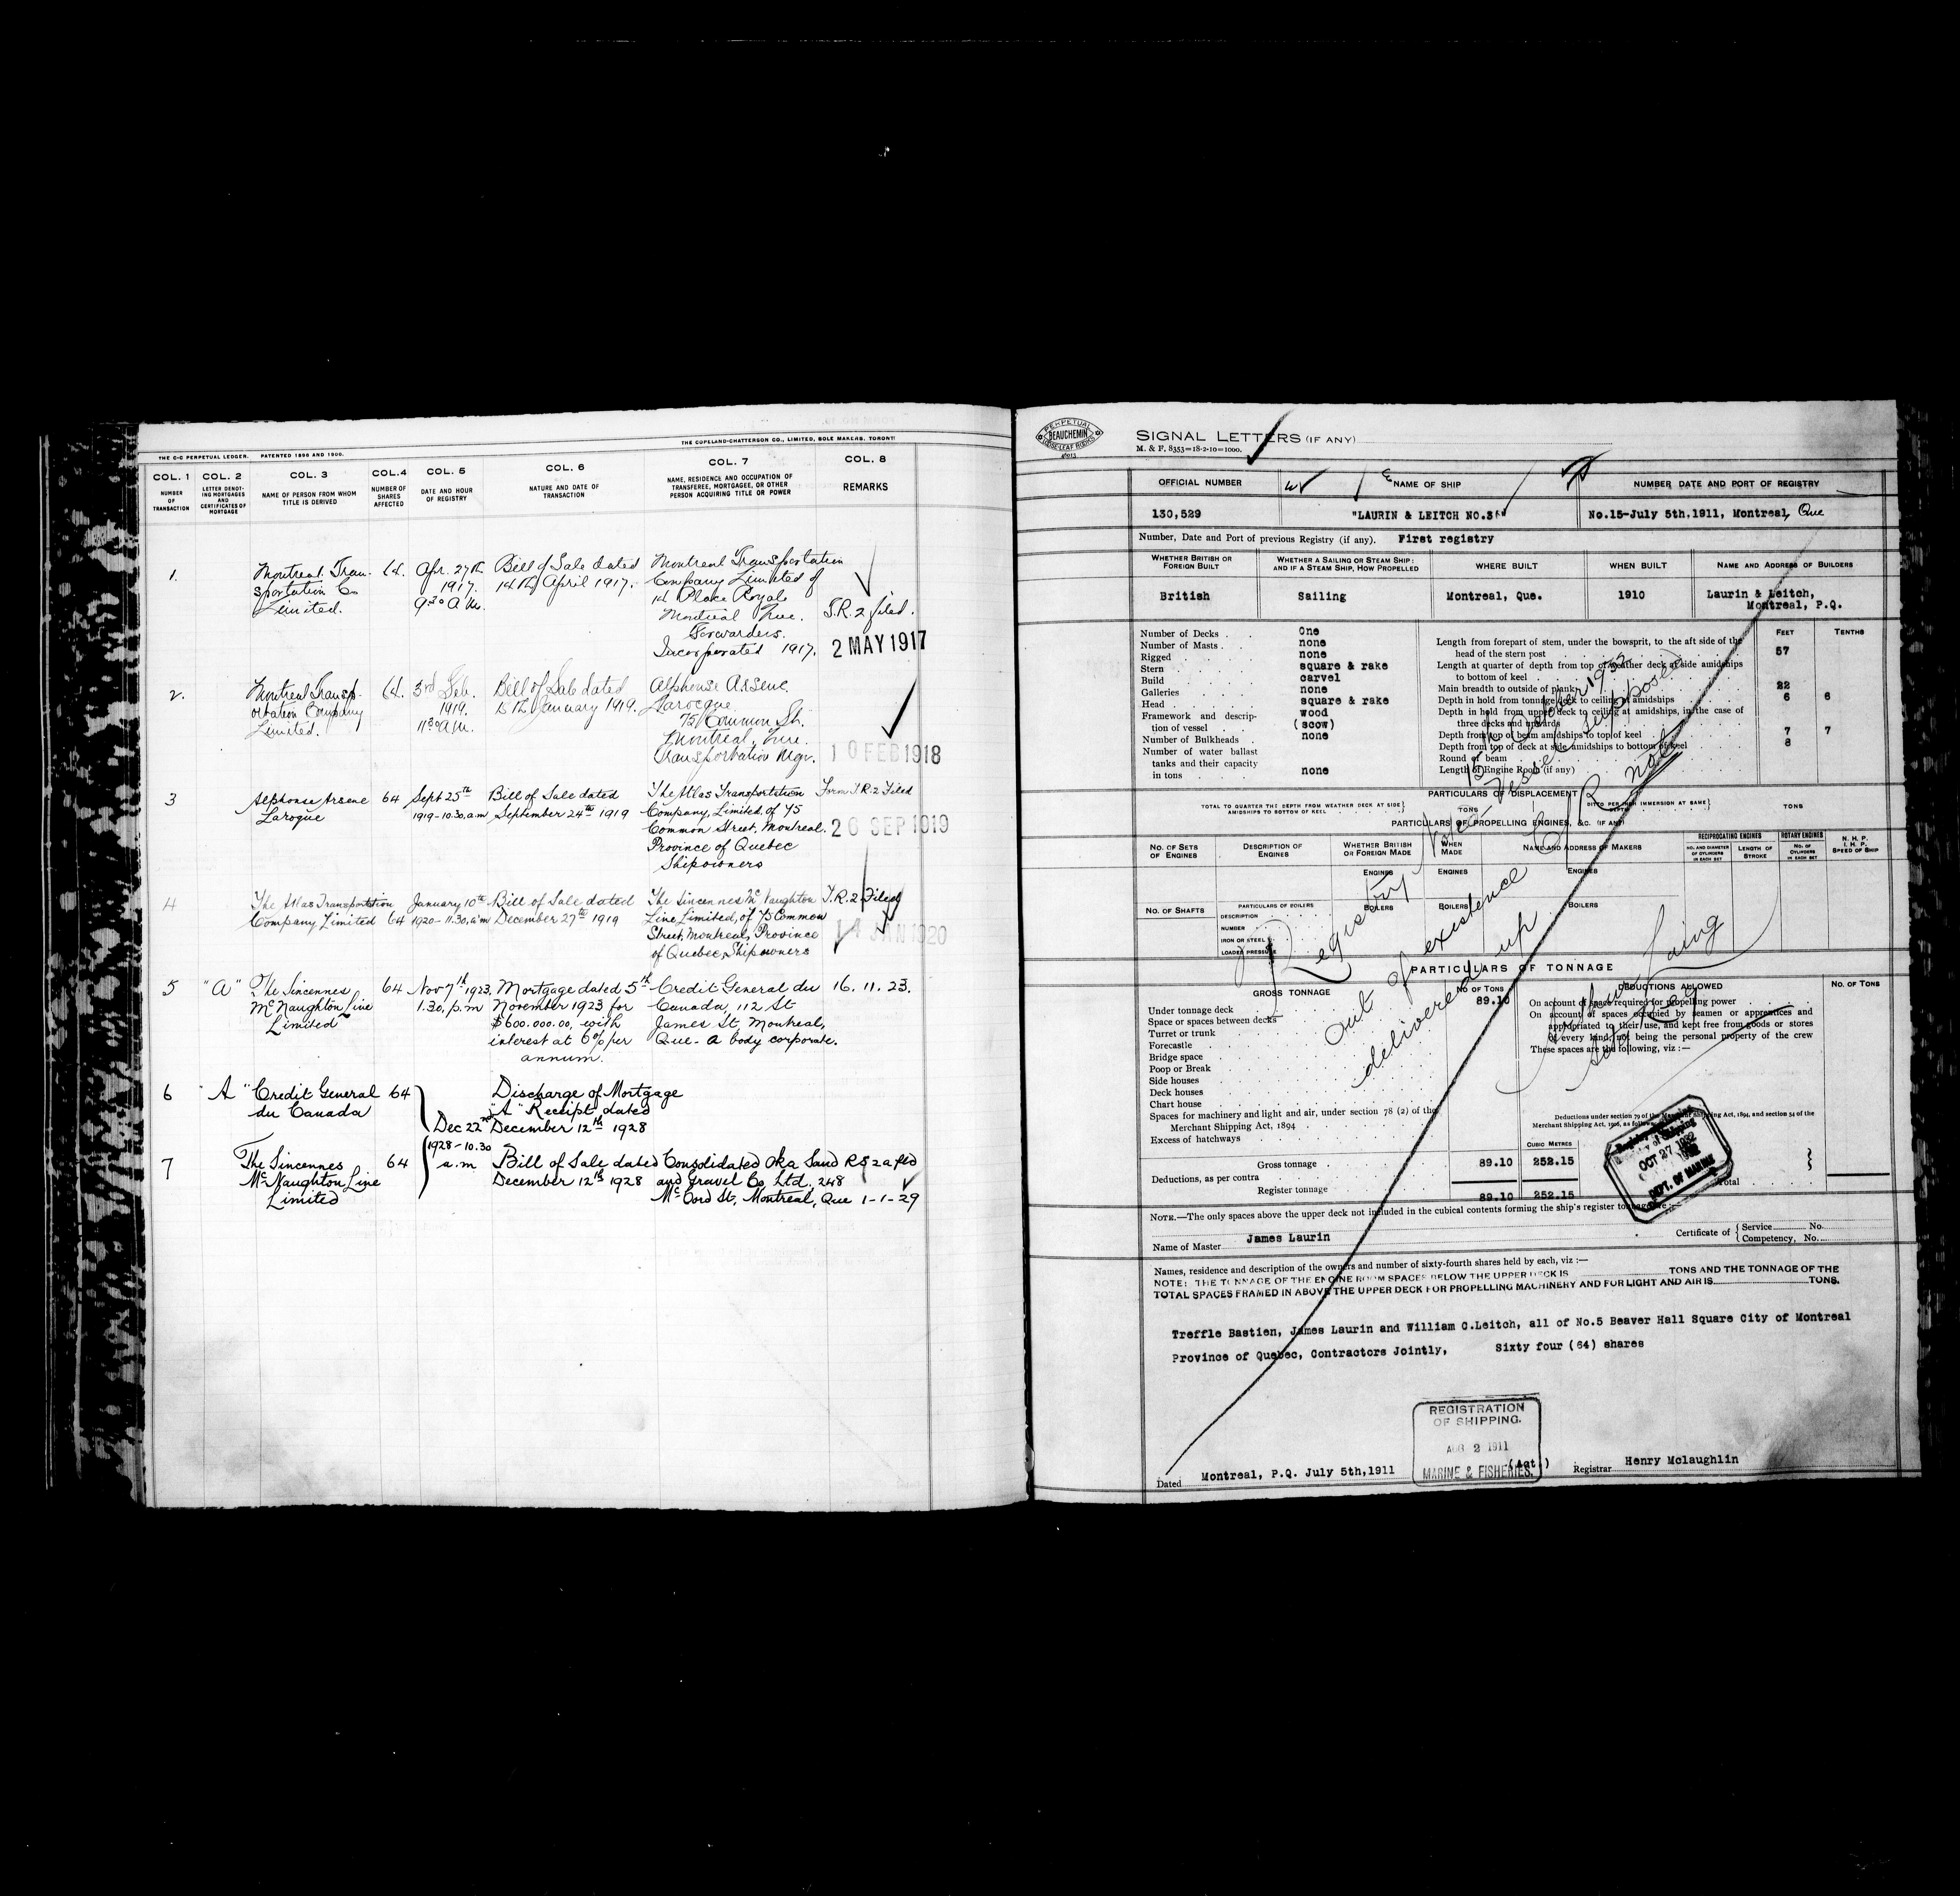 THE C-C PERPETUAL LEDGER. PATENTED 1896 AND 1900.
THE COPELAND-CHATTERSON CO., LIMITED, SOLE MAKERS, TORONT
COL. 1
NUMBER
OF
TRANSACTION
COL. 2
LETTER DENOT-
ING MORTGAGES
AND
CERTIFICATES OF
MORTGAGE
COL. 3
NAME OF PERSON FROM WHOM
TITLE IS DERIVED
COL. 4
NUMBER OF
SHARES
AFFECTED
COL. 5
DATE AND HOUR
OF REGISTRY
COL. 6
NATURE AND DATE OF
TRANSACTION
COL. 7
NAME, RESIDENCE AND OCCUPATION OF
TRANSFEREE, MORTGAGEE, OR OTHER
PERSON ACQUIRING TITLE OR POWER
COL. 8
REMARKS
1.
Montreal Tran-
sportation Co
Limited.
64.
Apr. 27th
1917.
9:30 A.M.
Bill of Sale dated
14th April 1917.
Montreal Transportation
Company Limited of
14 Place Royale
Montreal Que.
Forwarders.
Incorporated 1917.
S.R.2 filed.
2 MAY 1917
2.
Montreal Transp-
ortation Company
Limited.
64.
3rd Feb.
1919.
11:30 a.m.
Bill of Sale dated
15th January 1919.
Alphonse Arsene
Larocque
75 Common St.
Montreal, Que.
Transportation Mgr.
10 FEB 1918
3
Alphonse Arsene
Laroque
64
Sept 25th
1919-10.30.a.m
Bill of Sale dated
September 24th 1919
The Atlas Transportation
Company, Limited, of 75
Common Street, Montreal.
Province of Quebec
Shipowners
Form T.R.2 Filed
26 SEP 1919
4
The Atlas Transportation
Company Limited
64
January 10th
1920-11.30.a.m
Bill of Sale dated
December 27th 1919
The Sincennes McNaughton
Line, Limited, of 75 Common
Street, Montreal, Province
of Quebec, Shipowners
T.R.2 Filed
14 JAN 1920
5
"A"
The Sincennes
McNaughton Line
Limited
64
Nov 7th 1923.
1.30. p.m
Mortgage dated 5th
November 1923 for
$600.000.00, with
interest at 6% per
annum.
Credit General du
Canada, 112 St
James St. Montreal,
Que- a body corporate.
16.11.23.
6
"A"
Credit General
du Canada
64
Discharge of Mortgage
"A" Receipt dated
December 12th 1928
Dec 22nd
1928-10.30
a.m
7
The Sincennes
McNaughton Line
Limited
64
Bill of Sale dated
December 12th 1928
Consolidated Oka Sand
and Gravel Co. Ltd. 248
McCord St. Montreal, Que
1-1-29
PERPETUAL
BEAUCHEMIN
LOOSE-LEAF BOOKS
SIGNAL LETTERS (IF ANY)
M. & F. 8353=18-2-10=1000.
OFFICIAL NUMBER
NAME OF SHIP
NUMBER DATE AND PORT OF REGISTRY
130,529
"LAURIN & LEITCH NO.3"
No.15-July 5th,1911, Montreal, Que
Number, Date and Port of previous Registry (if any). First registry
WHETHER BRITISH OR
FOREIGN BUILT
WHETHER A SAILING OR STEAM SHIP:
AND IF A STEAM SHIP, HOW PROPELLED
WHERE BUILT
WHEN BUILT
NAME AND ADDRESS OF BUILDERS
British
Sailing
Montreal, Que.
1910
Laurin & Leitch,
Montreal, P.Q.
Number of Decks . . One
Number of Masts . . none
Rigged none
Stern square & rake
Build carvel
Galleries none
Head square & rake
Framework and descrip- wood
tion of vessel (scow)
Number of Bulkheads none
Number of water ballast
tanks and their capacity
in tons none
FEET
TENTHS
Length from forepart of stem, under the bowsprit, to the aft side of the
head of the stern post 57
Length at quarter of depth from top of weather deck at side amidships
to bottom of keel
Main breadth to outside of plank 22
Depth in hold from tonnage deck to ceiling at amidships 6 6
Depth in hold from upper deck to ceiling at amidships, in the case of
three decks and upwards
Depth from top of beam amidships to top of keel 7 7
Depth from top of deck at side amidships to bottom of keel 8
Round of beam
Length of Engine Room (if any)
PARTICULARS OF DISPLACEMENT
TOTAL TO QUARTER THE DEPTH FROM WEATHER DECK AT SIDE
AMIDSHIPS TO BOTTOM OF KEEL
TONS
DITTO PER INCH IMMERSION AT SAME
DEPTH
TONS
PARTICULARS OF PROPELLING ENGINES, &C. (IF ANY)
NO. OF SETS
OF ENGINES
DESCRIPTION OF
ENGINES
WHETHER BRITISH
OR FOREIGN MADE
WHEN
MADE
NAME AND ADDRESS OF MAKERS
RECIPROCATING ENGINES
NO. AND DIAMETER
OF CYLINDERS
IN EACH SET
LENGTH OF
STROKE
ROTARY ENGINES
NO. OF
CYLINDERS
IN EACH SET
N. H. P.
I. H. P.
SPEED OF SHIP
ENGINES
ENGINES
ENGINES
NO. OF SHAFTS
PARTICULARS OF BOILERS
DESCRIPTION
NUMBER
IRON OR STEEL
LOADED PRESSURE
BOILERS
BOILERS
BOILERS
Registry
15th October 1932
Vessel
(supposed)
out of existence
C/R not
delivered up
Arthur Laing
PARTICULARS OF TONNAGE
GROSS TONNAGE
NO OF TONS
Under tonnage deck 89.10
Space or spaces between decks
Turret or trunk
Forecastle
Bridge space
Poop or Break
Side houses
Deck houses
Chart house
Spaces for machinery and light and air, under section 78 (2) of the
Merchant Shipping Act, 1894
Excess of hatchways
CUBIC METRES
Gross tonnage 89.10 252.15
Deductions, as per contra
Register tonnage 89.10 252.15
DEDUCTIONS ALLOWED
NO. OF TONS
On account of space required for propelling power
On account of spaces occupied by seamen or apprentices and
appropriated to their use, and kept free from goods or stores
of every kind, not being the personal property of the crew
These spaces are the following, viz :—
Deductions under section 79 of the Merchant Shipping Act, 1894, and section 54 of the
Merchant Shipping Act, 1906, as follows
Total
OCT 27 1932
DEPT. OF MARINE
NOTE.—The only spaces above the upper deck not included in the cubical contents forming the ship's register tonnage are
Name of Master James Laurin
Certificate of { Service No.
Competency, No.
Names, residence and description of the owners and number of sixty-fourth shares held by each, viz :—
NOTE: THE TONNAGE OF THE ENGINE ROOM SPACES BELOW THE UPPER DECK IS TONS AND THE TONNAGE OF THE
TOTAL SPACES FRAMED IN ABOVE THE UPPER DECK FOR PROPELLING MACHINERY AND FOR LIGHT AND AIR IS TONS.
Treffle Bastien, James Laurin and William C.Leitch, all of No.5 Beaver Hall Square City of Montreal
Province of Quebec, Contractors Jointly, Sixty four (64) shares
REGISTRATION
OF SHIPPING.
AUG 2 1911
MARINE & FISHERIES.
Dated Montreal, P.Q. July 5th,1911
(Act.)
Registrar Henry Mclaughlin